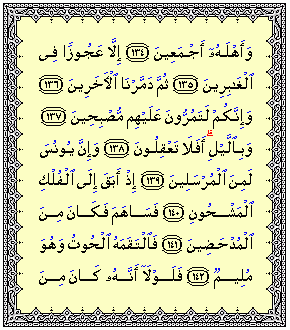 وَأَهْلَهُۥٓ أَجْمَعِينَ ١٣٤ إِلَّا عَجُوزًا فِى
ٱلْغَٰبِرِينَ ١٣٥ ثُمَّ دَمَّرْنَا ٱلْأَخَرِينَ ١٣٦
وَإِنَّكُمْ لَتَمُرُّونَ عَلَيْهِم مُّصْبِحِينَ ١٣٧
وَبِٱلَّيْلِ أَفَلَا تَعْقِلُونَ ١٣٨ وَإِنَّ يُونُسَ
لَمِنَ ٱلْمُرْسَلِينَ ١٣٩ إِذْ أَبَقَ إِلَى ٱلْفُلْكِ
ٱلْمَشْحُونِ ١٤٠ فَسَاهَمَ فَكَانَ مِنَ
ٱلْمُدْحَضِينَ ١٤١ فَٱلْتَقَمَهُ ٱلْحُوتُ وَهُوَ
مُلِيمٌ ١٤٢ فَلَوْلَآ أَنَّهُۥ كَانَ مِنَ